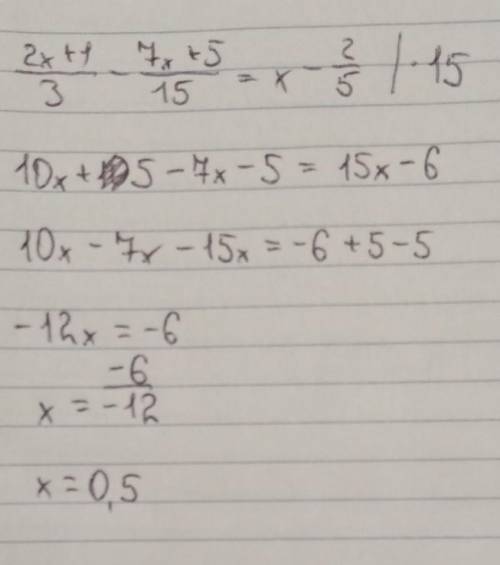 (2x+1)/3 - (7x+5)/15 = x - 2/5 | · 15
10x + 5 - 7x - 5 = 15x - 6
10x - 7x - 15x = -6 + 5 - 5
-12x = -6
x = -6/-12
x = 0,5